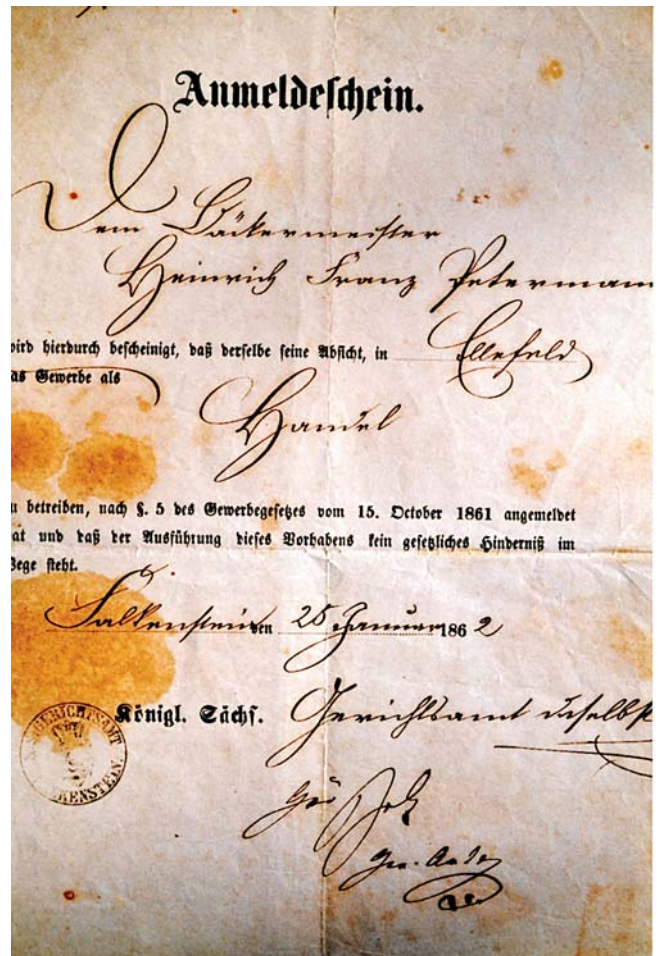 Anmeldeschein.
Dem Bäckermeister
Heinrich Franz Peterman
wird hierdurch bescheinigt, daß derselbe seine Absicht, in Ellefeld
as Gewerbe als
Handel
u betreiben, nach §. 5 des Gewerbegesetzes vom 15. October 1861 angemeldet
at und daß der Ausführung dieses Vorhabens kein gesetzliches Hinderniß im
Wege steht.
Falkenstein den 25 Januar 1862
Königl. Sächs. Gerichtsamt daselbst
GERICHTSAMT
KENSTEIN.